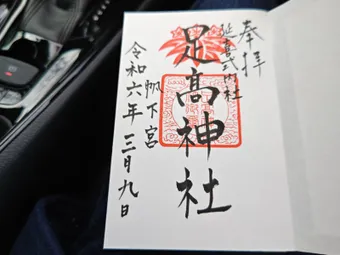 奉拝
延喜式内社
足高神社
帆下宮
令和六年三月九日